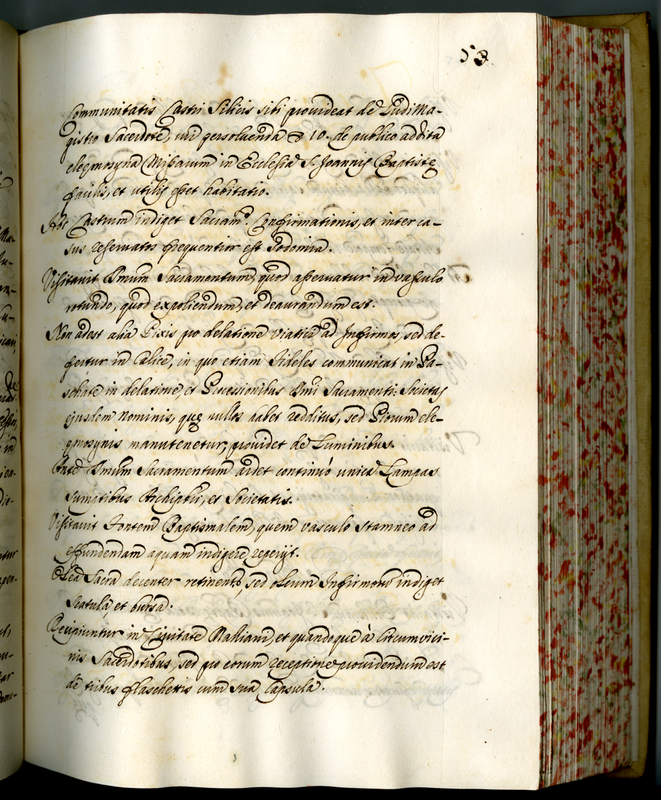 58.
Communitatis Castri Silicis sibi provideat de Ludima-
gistro Sacerdote, cui persoluenda 10. de publico addita
eleemosyna Missarum in Ecclesia S. Joannis Baptistę
facilis, et utilis esset habitatio.
Hoc Castrum indiget Sacram. Confirmationis, et inter ca-
sus reservatos frequentior est
Visitavit Smum Sacramentum, quod asservatur in vasculo
rotundo, quod expoliendum, et deaurandum est.
Non adest alia Pixis pro delatione Viatici ad Infirmos, sed de-
fertur in Calice, in quo etiam Fideles communicat in Pa-
schate in delatione, et Processionibus Smi Sacramenti. Societas
ejusdem nominis, quę nullos habet redditus, sed Piorum ele-
emosynis manutenetur, providet de Luminibus.
Ante Smum Sacramentum ardet continuo unica Lampas
sumptibus Archiptri, et Societatis.
Visitavit Fontem Baptismalem, quem vasculo stamneo ad
effundendam aquam indigere reperijt.
Olea Sacra decenter retinentur, sed oleum Infirmorum indiget
scatula et bursa.
Recipiuntur in Civitate et quandoque à Circumvici-
nis Sacerdotibus, sed pro eorum receptione providendum est
de tribus flaschettis cum sua Capsula.